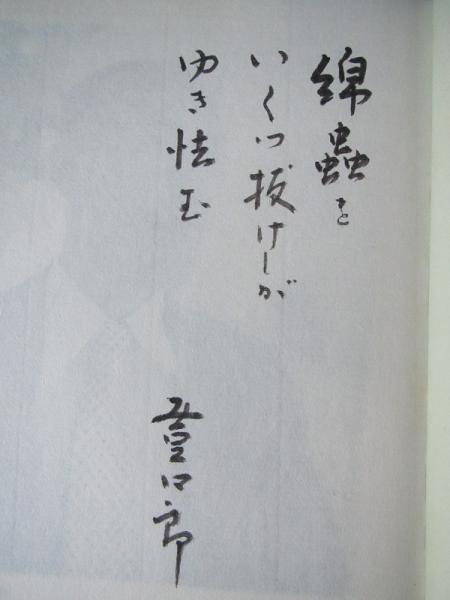 綿蟲を
いくつ抜けしが
ゆき怯む
登四郎